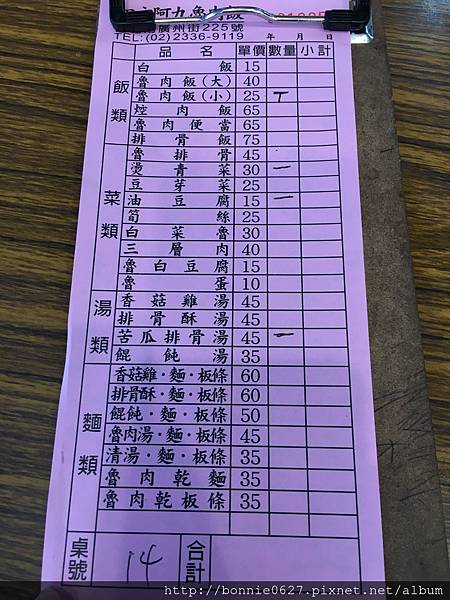 阿九魯肉飯
廣州街225號
TEL:(02)2336-9119 年 月 日
品名 單價 數量 小計
飯類
白飯 15
魯肉飯(大) 40
魯肉飯(小) 25 T
焢肉飯 65
魯肉便當 65
排骨飯 75
菜類
魯排骨 45
燙青菜 30 一
豆芽菜 25
油豆腐 15 一
筍絲 25
白菜魯 30
三層肉 40
魯白豆腐 15
魯蛋 10
湯類
香菇雞湯 45
排骨酥湯 45
苦瓜排骨湯 45 一
餛飩湯 35
麵類
香菇雞·麵·板條 60
排骨酥·麵·板條 60
餛飩·麵·板條 50
魯肉湯·麵·板條 45
清湯·麵·板條 35
魯肉乾麵 35
魯肉乾板條 35
桌號 14 合計
http://bonnie0627.pixnet.net/album